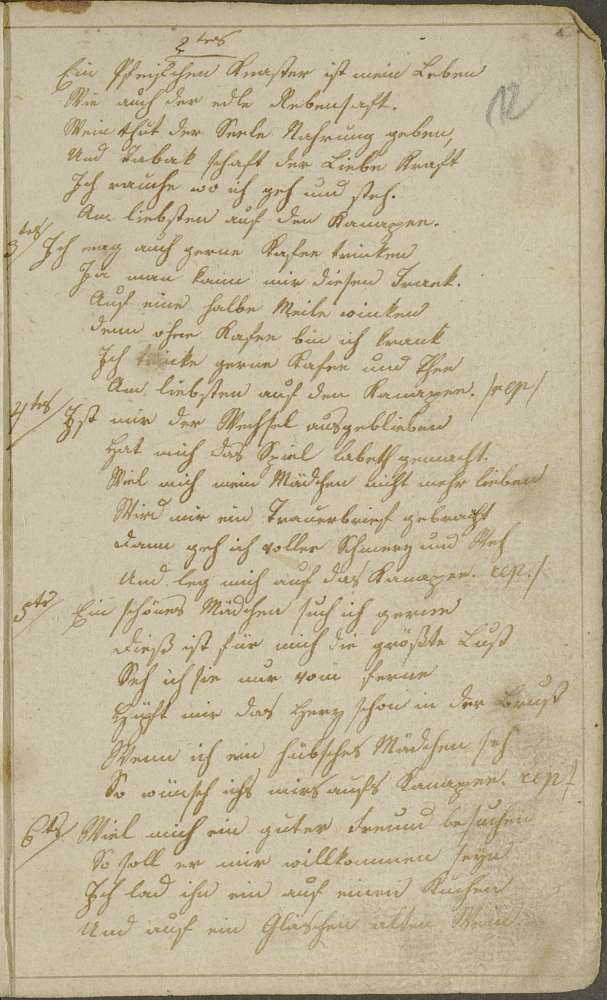 2tes
12
Ein Pfeifchen Knaster ist mein Leben
Wie auch der edle Rebensaft.
Wein thut der Seele Nahrung geben,
Und Tabak schaft der Liebe Kraft
Ich rauche wo ich geh und steh.
Am liebsten auf den Kanapee.
3tes/ Ich mag auch gerne Kafee trinken
Ja man kann mir diesen Trank.
Auf eine halbe Meile winken
denn ohne Kafee bin ich krank
Ich trinke gerne Kafee und Thee
Am liebsten auf den Kanapee. /rep/
4tes/ Ist mir der Wechsel ausgeblieben
Hat mich das Spiel labeth gemacht.
Will mich mein Mädchen nicht mehr lieben
Wird mir ein Trauerbrief gebracht
Dann geh ich voller Schmerz und Weh
Und leg mich auf das Kanapee. rep./
5tes/ Ein schönes Mädchen such ich gerne
Dieß ist für mich die größte Lust
Seh ich sie nur vom ferne
Hüpft mir das Herz schon in der Brust
Wenn ich ein hübsches Mädchen seh
So wünsch ichs mirs aufs Kanapee. rep/
6tes/ Will mich ein guter Freund besuchen
So soll er mir willkommen seyn
Ich lad ihn ein auf einen Kuchen
Und auf ein Gläschen alten Wein